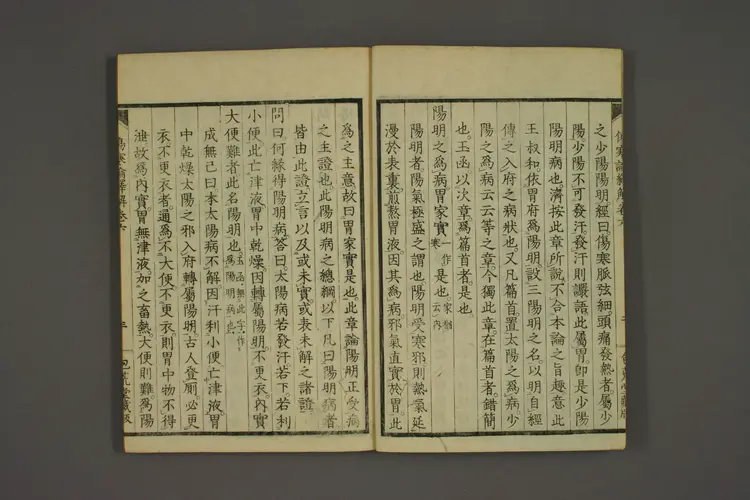 傷寒論繹解卷六
之少陽陽明經曰傷寒脈弦細頭痛發熱者屬少
陽少陽不可發汗發汗則讝語此屬胃卽是少陽
陽明病也濟按此章所說不合本論之旨趣意此
王叔和依胃府爲陽明設三陽明之名以明自經
傳之入府之病狀也又凡篇首置太陽之爲病少
陽之爲病云云等之章今獨此章在篇首者錯簡
也玉函以次章爲篇首者是也
陽明之爲病胃家實一作寒是也家猶云內
陽明者陽氣極盛之謂也陽明受寒邪則熱氣延
漫於表裏煎熬胃液因其爲病邪氣直實於胃此
爲之主意故曰胃家實是也此章論陽明正受病
之主證也此陽明病之總綱以下凡曰陽明病者
皆由此證立言以及或未實或表未解之諸證
問曰何緣得陽明病答曰太陽病若發汗若下若利
小便此亡津液胃中乾燥因轉屬陽明不更衣內實
大便難者此名陽明也玉函無此字作爲陽明病也
成無己曰本太陽病不解因汗利小便亡津液胃
中乾燥太陽之邪入府轉屬陽明古人登廁必更
衣不更衣者通爲不大便不更衣則胃中物不得
泄故爲內實胃無津液加之畜熱大便則難爲陽
傷寒論繹解卷六